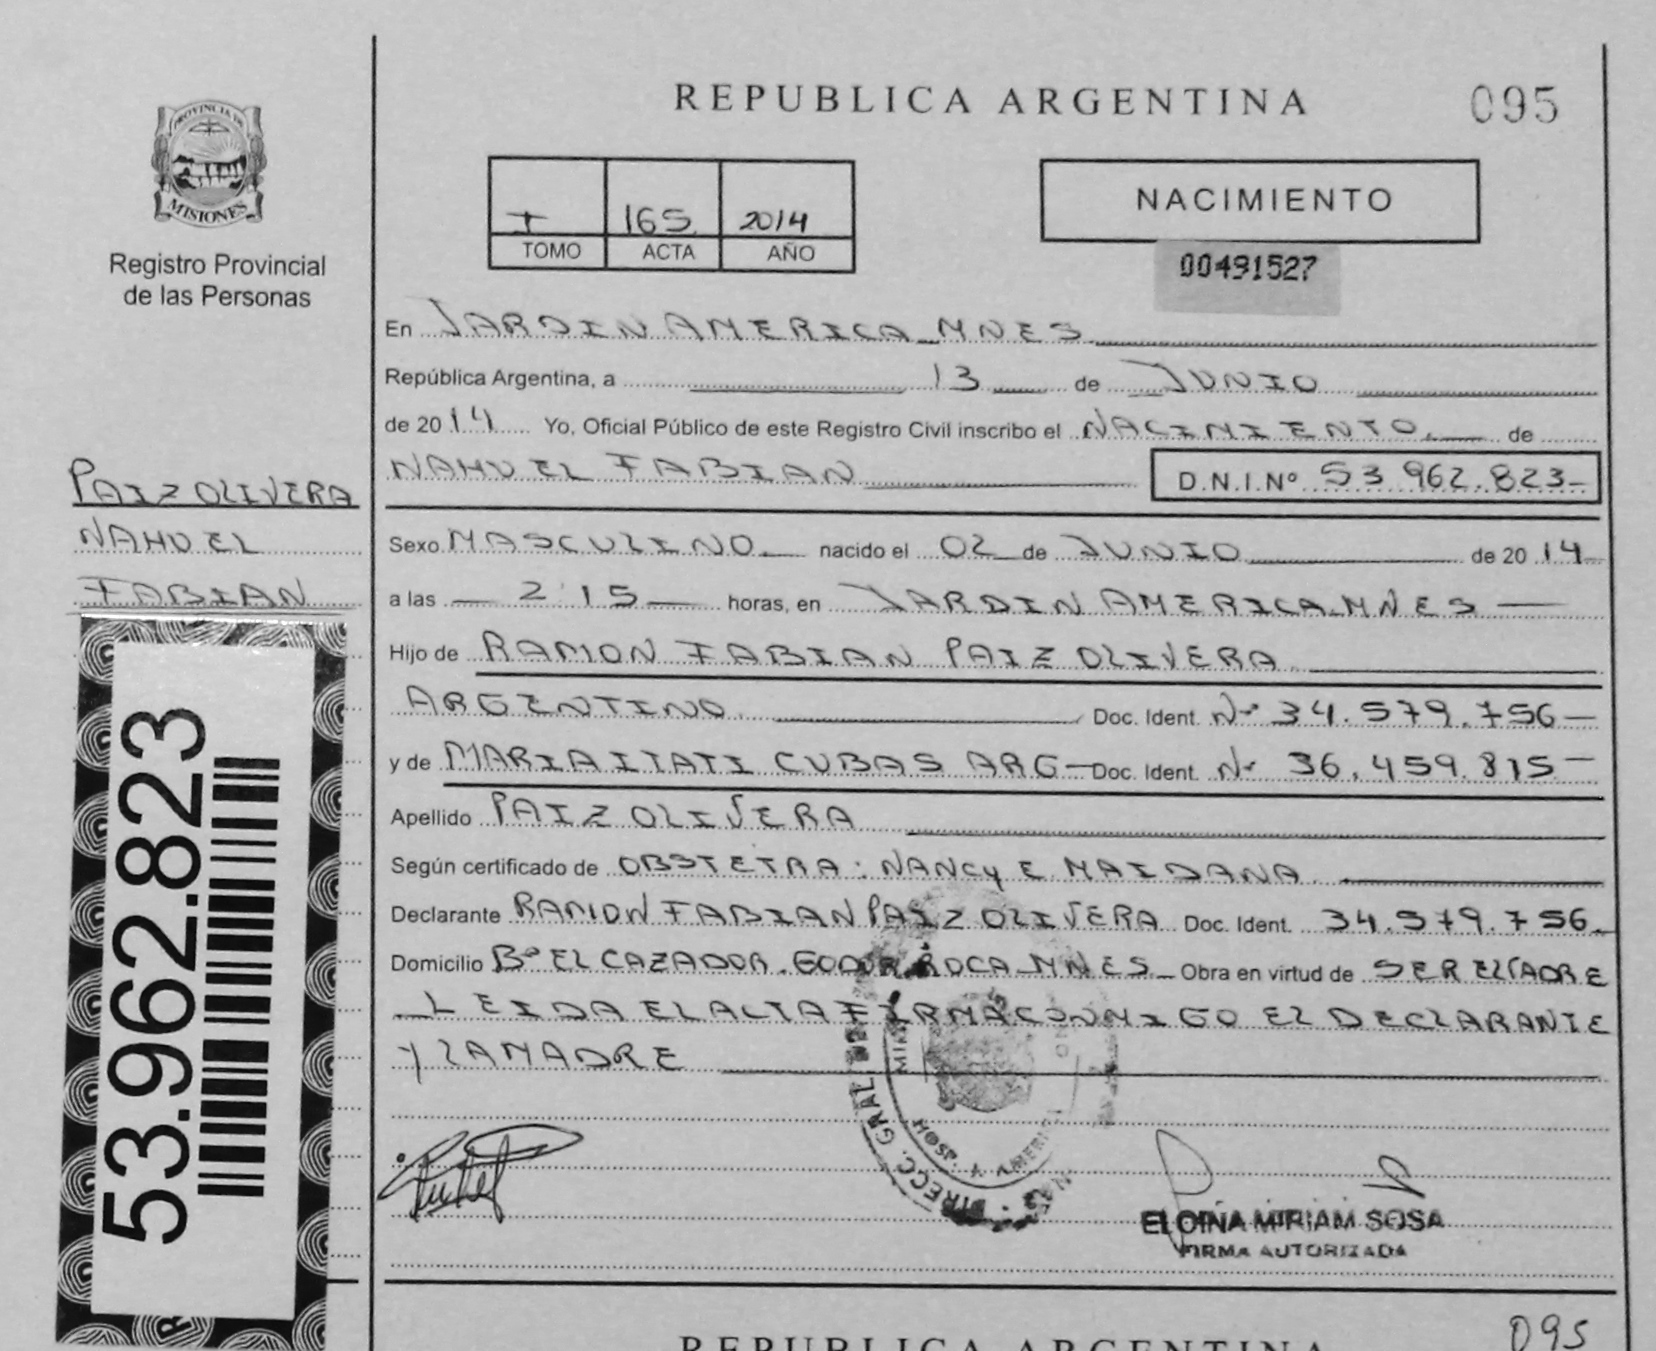 REPUBLICA ARGENTINA
095
PROVINCIA DE
MISIONES
Registro Provincial
de las Personas
I 165 2014
TOMO ACTA AÑO
NACIMIENTO
00491527
En JARDIN AMERICA MNES
República Argentina, a 13 de JUNIO
de 2014 Yo, Oficial Público de este Registro Civil inscribo el NACIMIENTO de
NAHUEL FABIAN D.N.I.Nº 53.962.823
PAIZ OLIVERA
NAHUEL
FABIAN
Sexo MASCULINO nacido el 02 de JUNIO de 2014
a las 2 15 horas, en JARDIN AMERICA MNES
Hijo de RAMON FABIAN PAIZ OLIVERA
ARGENTINO Doc. Ident. Nº 34.579.756
y de MARIA ITATI CUBAS ARG Doc. Ident. Nº 36.459.815
Apellido PAIZ OLIVERA
Según certificado de OBSTETRA: NANCY E. MAIDANA
Declarante RAMON FABIAN PAIZ OLIVERA Doc. Ident. 34.579.756
Domicilio Bº EL CAZADOR. ROCA MNES Obra en virtud de SER EL PADRE
LEIDA EL ACTA FIRMA CONMIGO EL DECLARANTE
Y LA MADRE
53.962.823
DIRECC. GRAL
HOSP.
ELOINA MIRIAM SOSA
FIRMA AUTORIZADA
REPUBLICA ARGENTINA
095